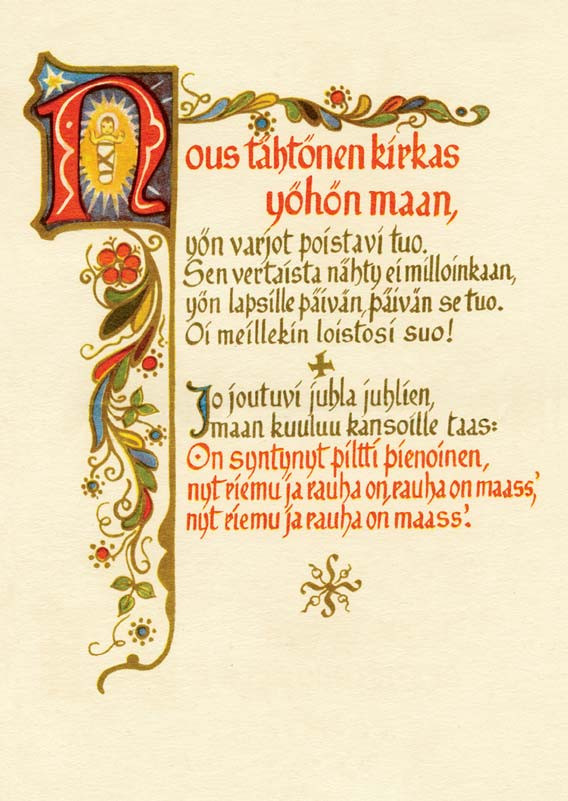 Nous tähtönen kirkas
yöhön maan,
yön varjot poistavi tuo.
Sen vertaista nähty ei milloinkaan,
yön lapsille päivän, päivän se tuo.
Oi meillekin loistosi suo!
Jo joutuvi juhla juhlien,
maan kuuluu kansoille taas:
On syntynyt piltti pienoinen,
nyt riemu ja rauha on, rauha on maass',
nyt riemu ja rauha on maass'.